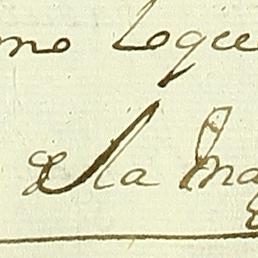 mo loque
de la Ma